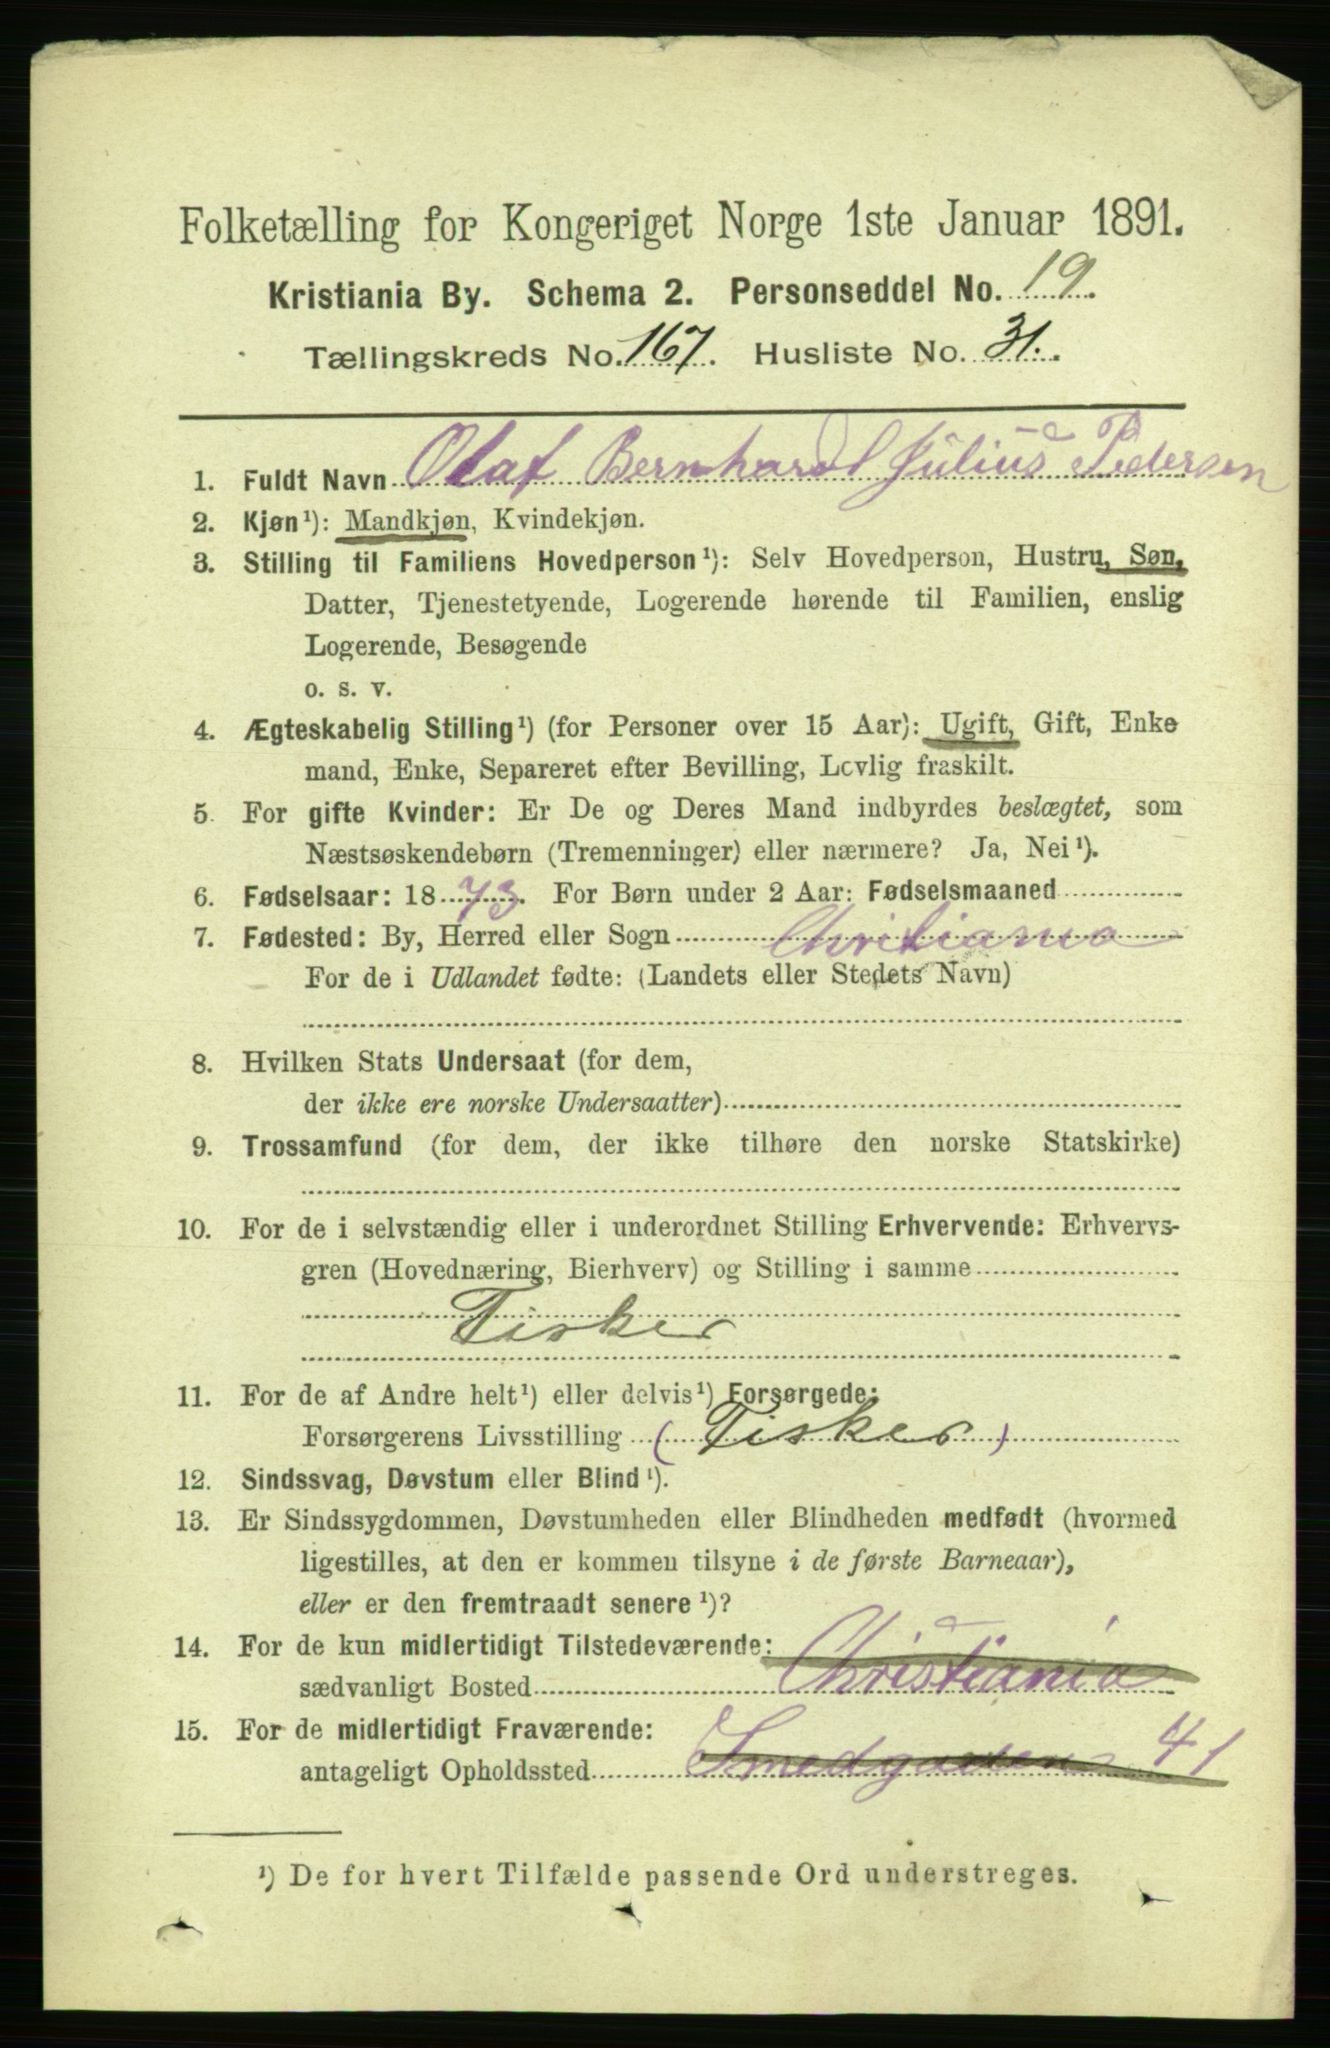 Folketælling for Kongeriget Norge 1ste Januar 1891.
Kristiania By. Schema 2. Personseddel No. 19.
Tællingskreds No. 167. Husliste No. 31.
1. Fuldt Navn Olaf Bernhard Julius Pedersen
2. Kjøn¹): Mandkjøn, Kvindekjøn.
3. Stilling til Familiens Hovedperson¹): Selv Hovedperson, Hustru, Søn,
Datter, Tjenestetyende, Logerende hørende til Familien, enslig
Logerende, Besøgende
o. s. v.
4. Ægteskabelig Stilling¹) (for Personer over 15 Aar): Ugift, Gift, Enke
mand, Enke, Separeret efter Bevilling, Lovlig fraskilt.
5. For gifte Kvinder: Er De og Deres Mand indbyrdes beslægtet, som
Næstsøskendebørn (Tremenninger) eller nærmere? Ja, Nei¹).
6. Fødselsaar: 1873. For Børn under 2 Aar: Fødselsmaaned
7. Fødested: By, Herred eller Sogn Chritiania
For de i Udlandet fødte: (Landets eller Stedets Navn)
8. Hvilken Stats Undersaat (for dem,
der ikke ere norske Undersaatter)
9. Trossamfund (for dem, der ikke tilhøre den norske Statskirke)
10. For de i selvstændig eller i underordnet Stilling Erhvervende: Erhvervs-
gren (Hovednæring, Bierhverv) og Stilling i samme
Tisker
11. For de af Andre helt¹) eller delvis¹) Forsørgede:
Forsørgerens Livsstilling (Tisker)
12. Sindssvag, Døvstum eller Blind¹).
13. Er Sindssygdommen, Døvstumheden eller Blindheden medfødt (hvormed
ligestilles, at den er kommen tilsyne i de første Barneaar),
eller er den fremtraadt senere¹)?
14. For de kun midlertidigt Tilstedeværende:
sædvanligt Bosted Christiania
15. For de midlertidigt Fraværende:
antageligt Opholdssted Smedgaden 41
¹) De for hvert Tilfælde passende Ord understreges.